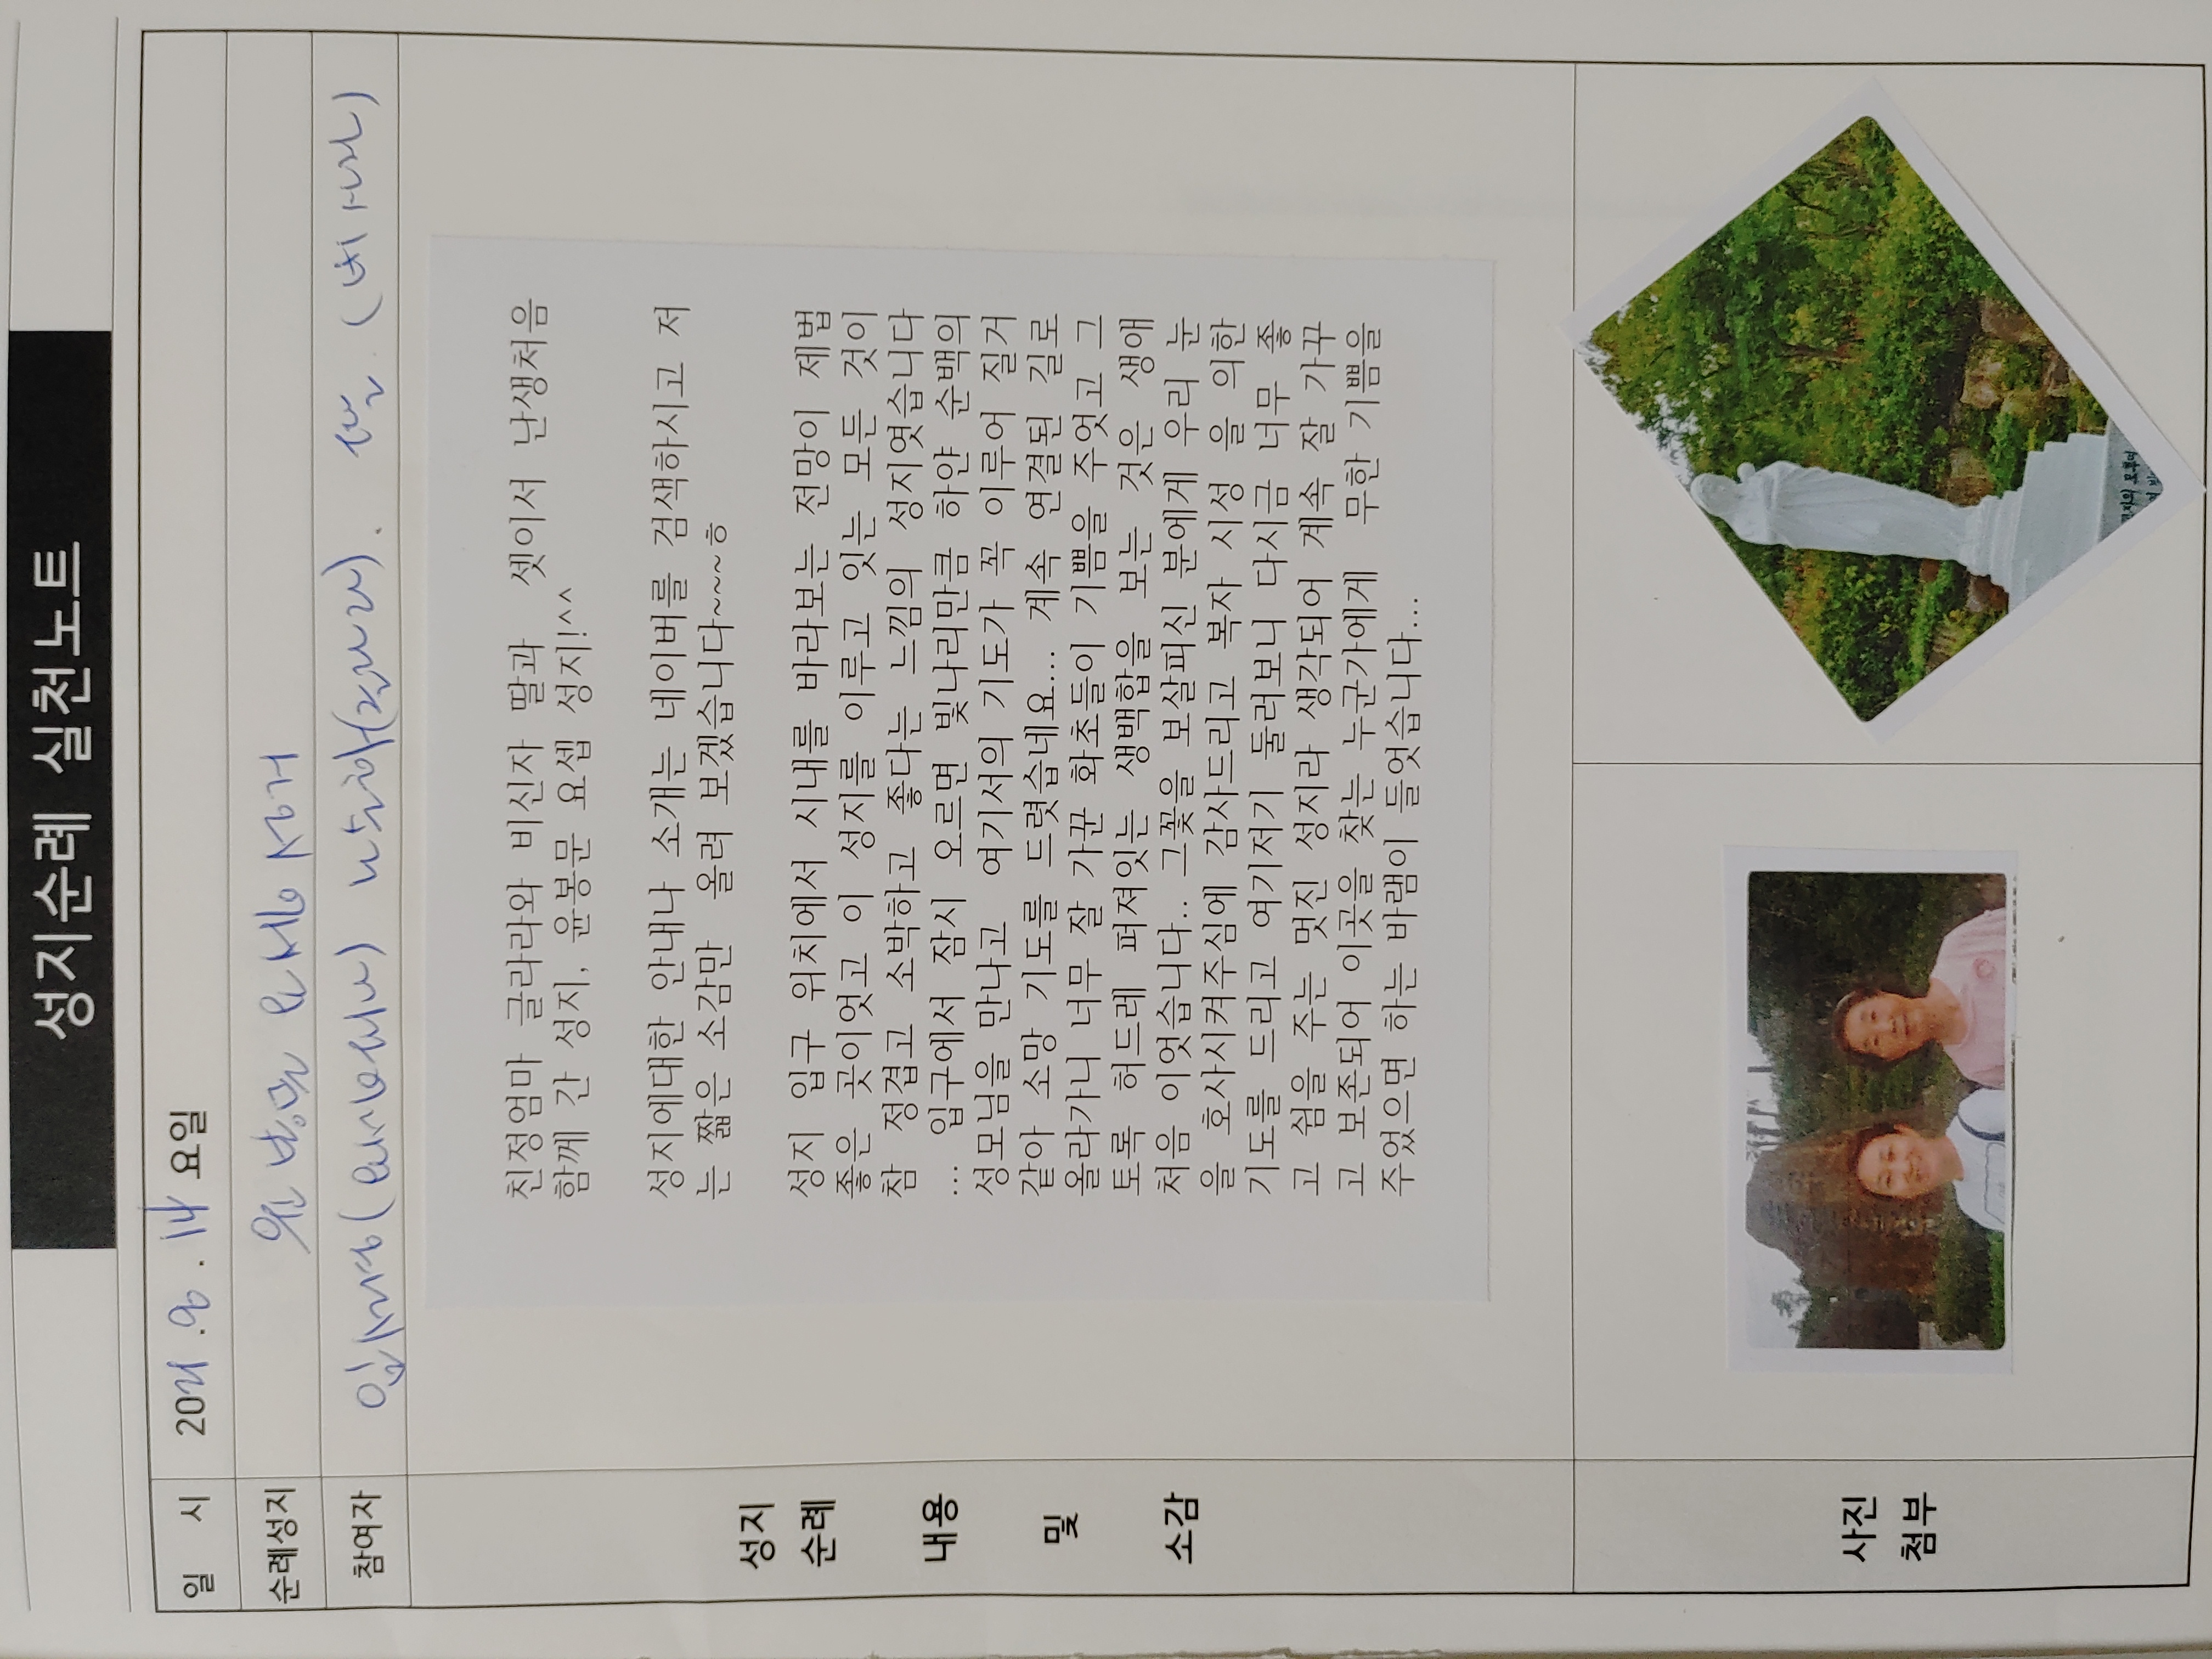 성지순례 실천노트
일 시 2021 .9 . 14 요일
순례성지 윤봉문 요셉 성지
참여자
성지
순례
내용
및
소감
친정엄마 글라라와 비신자 딸과 셋이서 난생처음
함께 간 성지, 윤봉문 요셉 성지!^^
성지에대한 안내나 소개는 네이버를 검색하시고 저
는 짧은 소감만 올려 보겠습니다~~~ㅎ
성지 입구 위치에서 시내를 바라보는 전망이 제법
좋은 곳이엇고 이 성지를 이루고 잇는 모든 것이
참 정겹고 소박하고 좋다는 느낌의 성지엿습니다
... 입구에서 잠시 오르면 빛나리만큼 하얀 순백의
성모님을 만나고 여기서의 기도가 꼭 이루어 질거
같아 소망 기도를 드렷습네요... 계속 연결된 길로
올라가니 너무 잘 가꾼 화초들이 기쁨을 주엇고 그
토록 허드레 퍼져잇는 생백합을 보는 것은 생애
처음 이엇습니다.. 그꽃을 보살피신 분에게 우리 눈
을 호사시켜주심에 감사드리고 복자 시성 을 의한
기도를 드리고 여기저기 둘러보니 다시금 너무 좋
고 쉼을 주는 멋진 성지라 생각되어 계속 잘 가꾸
고 보존되어 이곳을 찾는 누군가에게 무한 기쁨을
주었으면 하는 바램이 들엇습니다...
사진
첨부